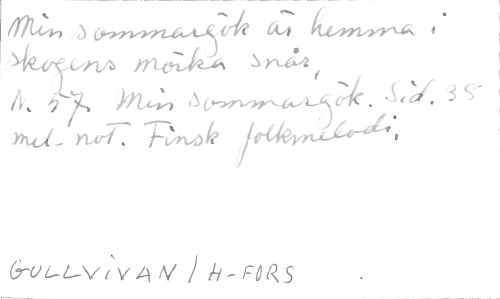 Min sommargök är hemma i
skogens mörka snår,
N. 57. Min sommargök. Sid. 38
mel-not. Finsk folkmelodi.
GULLVIVAN / H-FORS